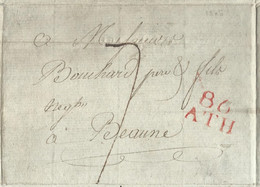 a Messieurs
Bouchard pere & fils
negts
à Beaune
7
86
ATH